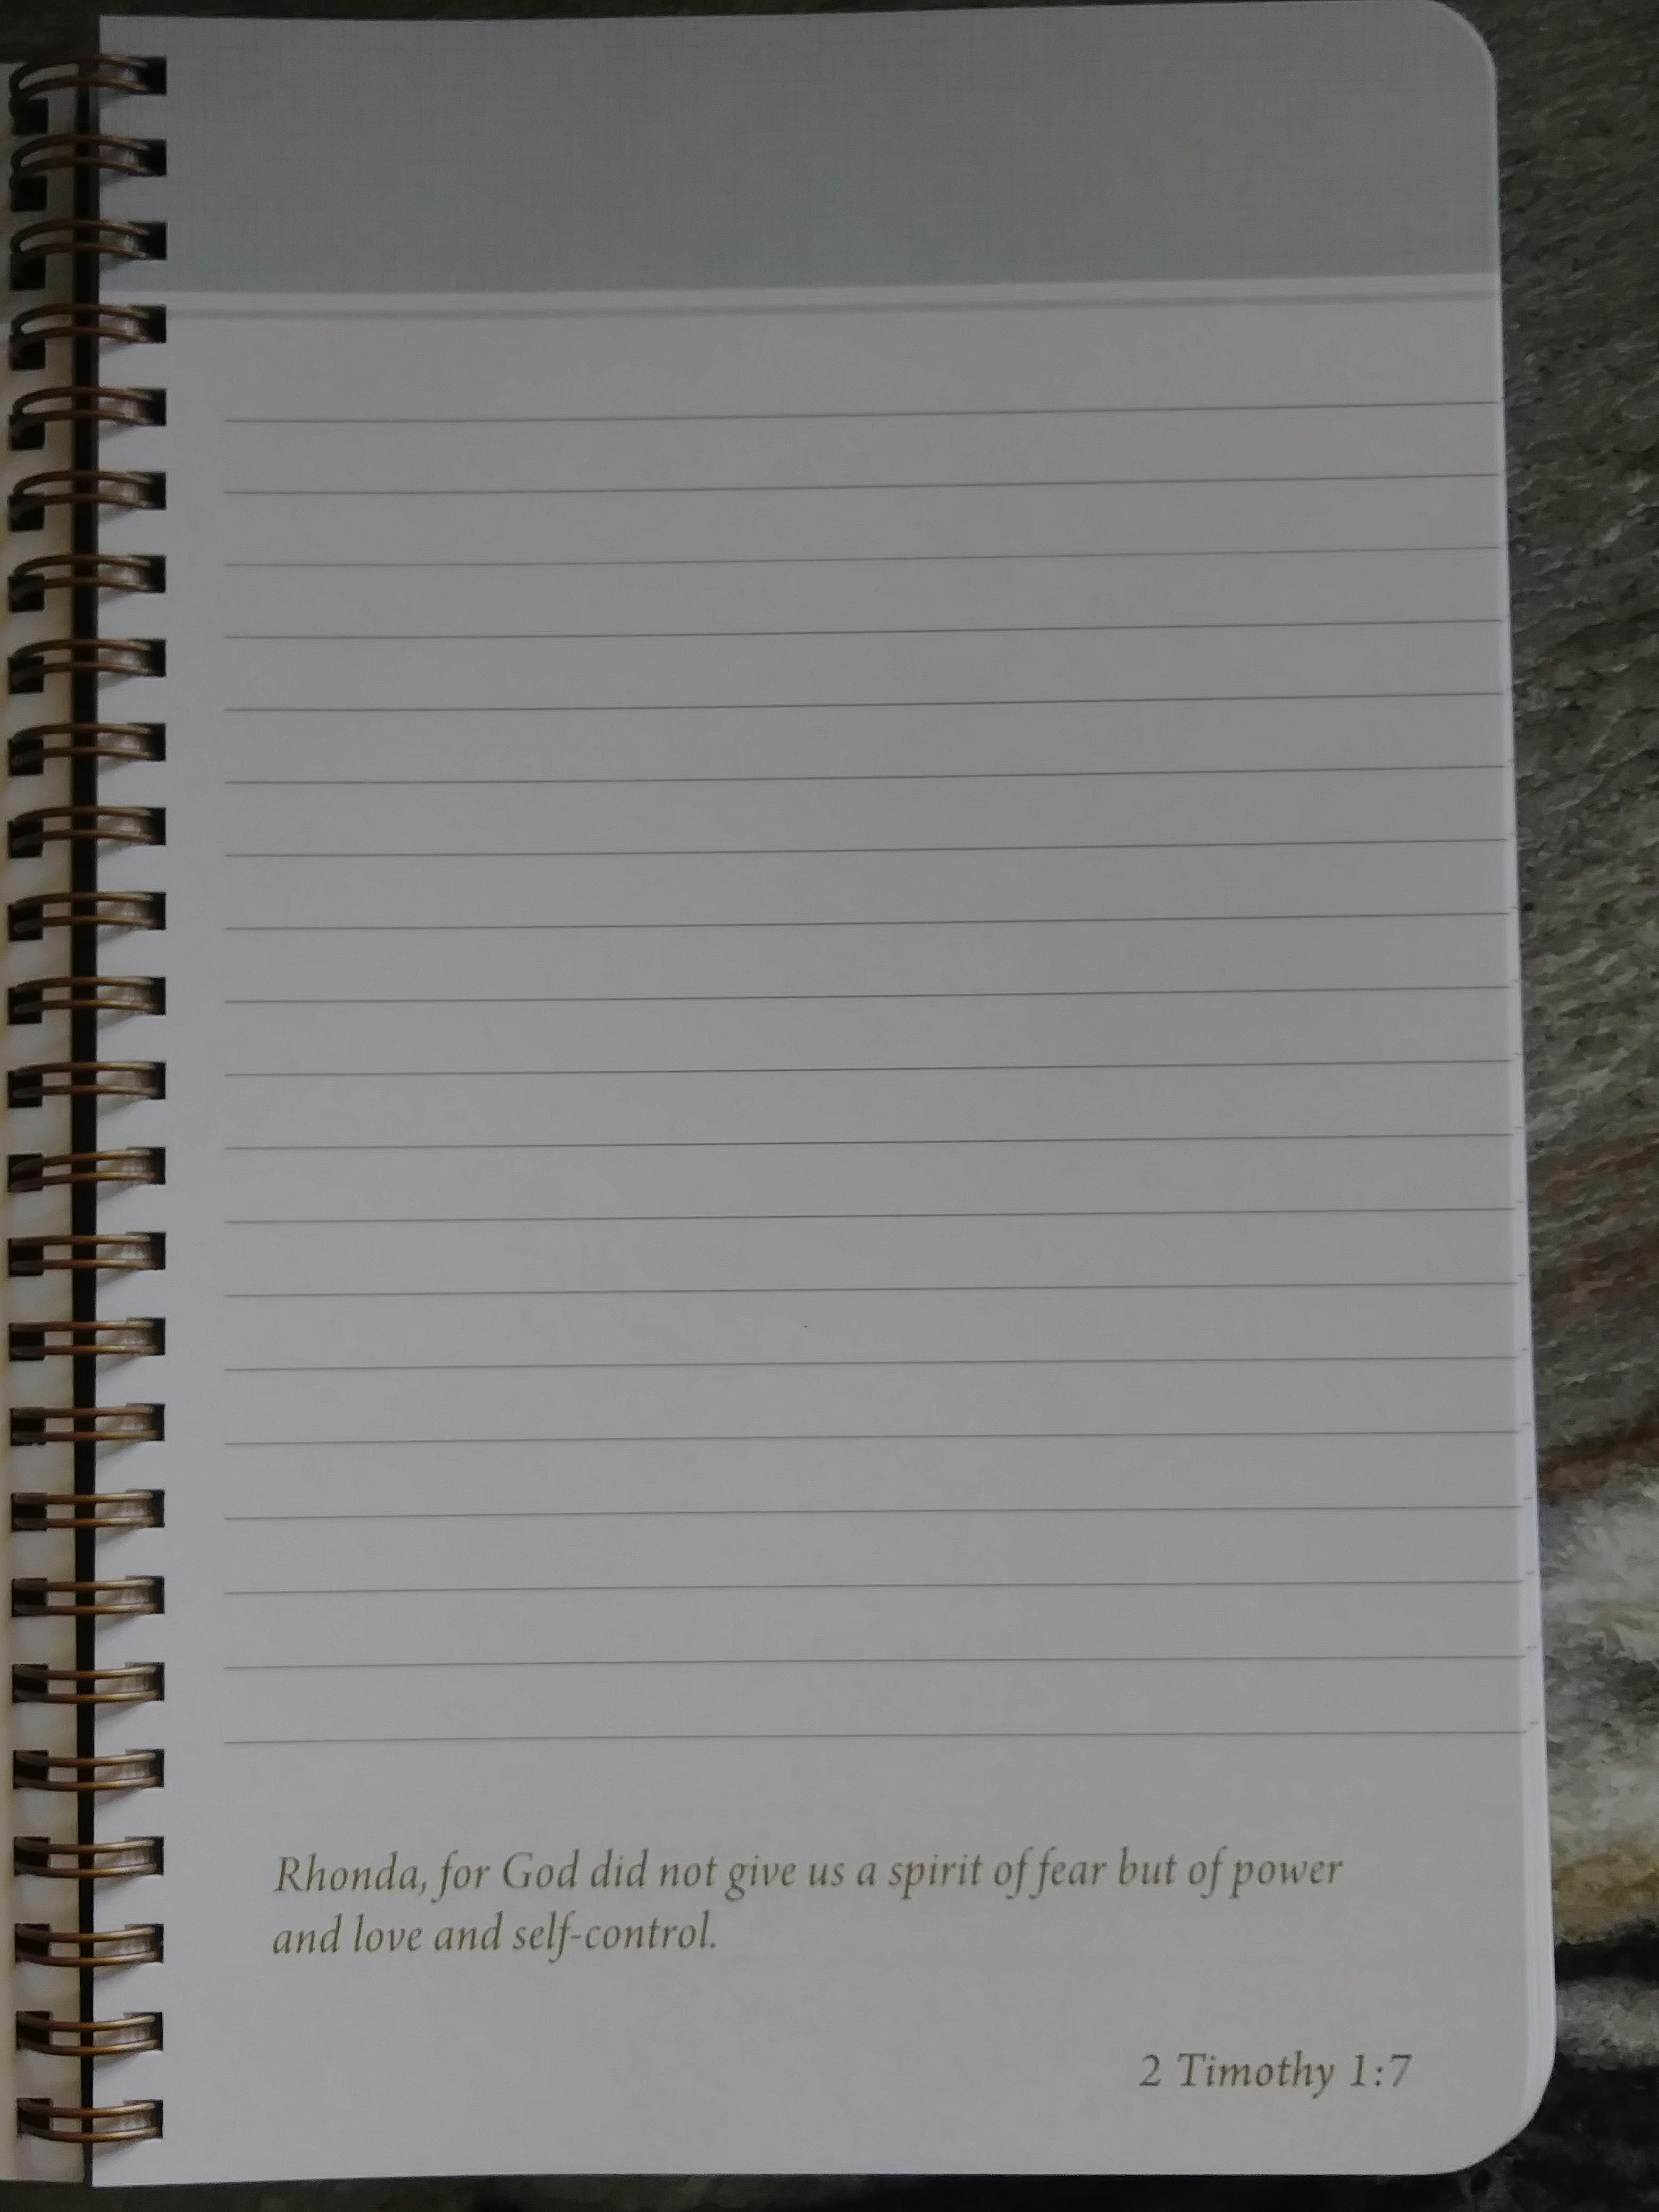 Rhonda, for God did not give us a spirit of fear but of power
and love and self-control.
2 Timothy 1:7